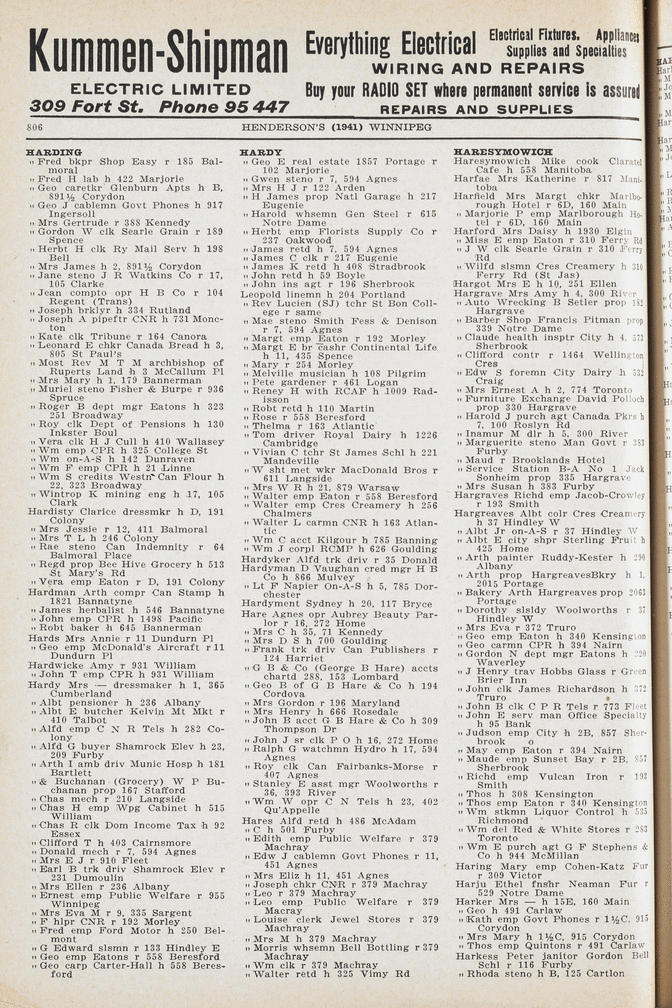 Kummen-Shipman
ELECTRIC LIMITED
309 Fort St. Phone 95 447
Everything Electrical
Electrical Fixtures. Appliances
Supplies and Specialties
WIRING AND REPAIRS
Buy your RADIO SET where permanent service is assured
REPAIRS AND SUPPLIES
806
HENDERSON'S (1941) WINNIPEG
HARDING
" Fred bkpr Shop Easy r 185 Bal-
moral
" Fred H lab h 422 Marjorie
" Geo caretkr Glenburn Apts h B,
891½ Corydon
" Geo J cablemn Govt Phones h 917
Ingersoll
" Mrs Gertrude r 388 Kennedy
" Gordon W clk Searle Grain r 189
Spence
" Herbt H clk Ry Mail Serv h 198
Bell
" Mrs James h 2, 891½ Corydon
" Jane steno J R Watkins Co r 17,
105 Clarke
" Jean compto opr H B Co r 104
Regent (Trans)
" Joseph brklyr h 334 Rutland
" Joseph A pipeftr CNR h 731 Monc-
ton
" Kate clk Tribune r 164 Canora
" Leonard E chkr Canada Bread h 3,
805 St Paul's
" Most Rev M T M archbishop of
Ruperts Land h 3 McCallum Pl
" Mrs Mary h 1, 179 Bannerman
" Muriel steno Fisher & Burpe r 936
Spruce
" Roger B dept mgr Eatons h 323
251 Broadway
" Roy clk Dept of Pensions h 130
Inkster Boul
" Vera clk H J Cull h 410 Wallasey
" Wm emp CPR h 325 College St
" Wm on-A-S h 142 Dunraven
" Wm F emp CPR h 21 Linne
" Wm S credits Westrn Can Flour h
22, 323 Broadway
" Wintrop K mining eng h 17, 105
Clark
Hardisty Clarice dressmkr h D, 191
Colony
" Mrs Jessie r 12, 411 Balmoral
" Mrs T L h 246 Colony
" Rae steno Can Indemnity r 64
Balmoral Place
" Regd prop Bee Hive Grocery h 513
St Mary's Rd
" Vera emp Eaton r D, 191 Colony
Hardman Arth compr Can Stamp h
1821 Bannatyne
" James herbalist h 546 Bannatyne
" John emp CPR h 1498 Pacific
" Robt baker h 645 Bannerman
Hards Mrs Annie r 11 Dundurn Pl
" Geo emp McDonald's Aircraft r 11
Dundurn Pl
Hardwicke Amy r 931 William
" John T emp CPR h 931 William
Hardy Mrs — dressmaker h 1, 365
Cumberland
" Albt pensioner h 236 Albany
" Albt E butcher Kelvin Mt Mkt r
410 Talbot
" Alfd emp C N R Tels h 282 Co-
lony
" Alfd G buyer Shamrock Elev h 23,
209 Furby
" Arth I amb driv Munic Hosp h 181
Bartlett
" & Buchanan (Grocery) W P Bu-
chanan prop 167 Stafford
" Chas mech r 210 Langside
" Chas H emp Wpg Cabinet h 515
William
" Chas R clk Dom Income Tax h 92
Essex
" Clifford T h 403 Cairnsmore
" Donald mech r 7, 594 Agnes
" Mrs E J r 910 Fleet
" Earl B trk driv Shamrock Elev r
231 Dumoulin
" Mrs Ellen r 236 Albany
" Ernest emp Public Welfare r 955
Winnipeg
" Mrs Eva M r 9, 335 Sargent
" F hlpr CNR r 192 Morley
" Fred emp Ford Motor h 250 Bel-
mont
" G Edward slsmn r 133 Hindley E
" Geo emp Eatons r 558 Beresford
" Geo carp Carter-Hall h 558 Beres-
ford
HARDY
" Geo E real estate 1857 Portage r
102 Marjorie
" Gwen steno r 7, 594 Agnes
" Mrs H J r 122 Arden
" H James prop Natl Garage h 217
Eugenie
" Harold whsemn Gen Steel r 615
Notre Dame
" Herbt emp Florists Supply Co r
237 Oakwood
" James retd h 7, 594 Agnes
" James C clk r 217 Eugenie
" James K retd h 408 Stradbrook
" John retd h 59 Boyle
" John ins agt r 196 Sherbrook
Leopold linemn h 204 Portland
" Rev Lucien (SJ) tchr St Bon Coll-
ege r same
" Mae steno Smith Fess & Denison
r 7, 594 Agnes
" Margt emp Eaton r 192 Morley
" Margt E br cashr Continental Life
h 11, 435 Spence
" Mary r 254 Morley
" Melville musician h 108 Pilgrim
" Pete gardener r 461 Logan
" Reney H with RCAF h 1009 Rad-
isson
" Robt retd h 110 Martin
" Rose r 558 Beresford
" Thelma r 163 Atlantic
" Tom driver Royal Dairy h 1226
Cambridge
" Vivian C tchr St James Schl h 221
Mandeville
" W sht met wkr MacDonald Bros r
611 Langside
" Mrs W R h 21, 879 Warsaw
" Walter emp Eaton r 558 Beresford
" Walter emp Cres Creamery h 256
Chalmers
" Walter L carmn CNR h 163 Atlan-
tic
" Wm C acct Kilgour h 785 Banning
" Wm J corpl RCMP h 626 Goulding
Hardyker Alfd trk driv r 35 Donald
Hardyman D Vaughan cred mgr H B
Co h 866 Mulvey
" Lt F Napier On-A-S h 5, 785 Dor-
chester
Hardyment Sydney h 20, 117 Bryce
Hare Agnes opr Aubrey Beauty Par-
lor r 16, 272 Home
" Mrs C h 35, 71 Kennedy
" Mrs D S h 700 Goulding
" Frank trk driv Can Publishers r
124 Harriet
" G B & Co (George B Hare) accts
chartd 288, 153 Lombard
" Geo B of G B Hare & Co h 194
Cordova
" Mrs Gordon r 196 Maryland
" Mrs Henry h 666 Rosedale
" John B acct G B Hare & Co h 309
Thompson Dr
" John J sr clk P O h 16, 272 Home
" Ralph G watchmn Hydro h 17, 594
Agnes
" Roy clk Can Fairbanks-Morse r
407 Agnes
" Stanley E asst mgr Woolworths r
36, 393 River
" Wm W opr C N Tels h 23, 402
Qu'Appelle
Hares Alfd retd h 486 McAdam
" C h 501 Furby
" Edith emp Public Welfare r 379
Machray
" Edw J cablemn Govt Phones r 11,
451 Agnes
" Mrs Eliz h 11, 451 Agnes
" Joseph chkr CNR r 379 Machray
" Leo r 379 Machray
" Leo emp Public Welfare r 379
Macray
" Louise clerk Jewel Stores r 379
Machray
" Mrs M h 379 Machray
" Morris whsemn Bell Bottling r 379
Machray
" Wm clk r 379 Machray
" Walter retd h 325 Vimy Rd
HARESYMOWICH
Haresymowich Mike cook Claratel
Cafe h 558 Manitoba
Harfae Mrs Katherine r 817 Mani-
toba
Harfield Mrs Margt chkr Marlbo-
rough Hotel r 6D, 160 Main
" Marjorie P emp Marlborough Ho-
tel r 6D, 160 Main
Harford Mrs Daisy h 1930 Elgin
" Miss E emp Eaton r 310 Ferry Rd
" J W clk Searle Grain r 310 Ferry
Rd
" Wilfd slsmn Cres Creamery h 310
Ferry Rd (St Jas)
Hargot Mrs E h 10, 251 Ellen
Hargrave Mrs Amy h 4, 300 River
" Auto Wrecking B Setler prop 181
Hargrave
" Barber Shop Francis Pitman prop
339 Notre Dame
" Claude health insptr City h 4, 573
Sherbrook
" Clifford contr r 1464 Wellington
Cres
" Edw S foremn City Dairy h 532
Craig
" Mrs Ernest A h 2, 774 Toronto
" Furniture Exchange David Polloch
prop 330 Hargrave
" Harold J purch agt Canada Pkrs h
7, 100 Roslyn Rd
" Inamur M dlr h 5, 300 River
" Marguerite steno Man Govt r 383
Furby
" Maud r Brooklands Hotel
" Service Station B-A No 1 Jack
Sonheim prop 335 Hargrave
" Mrs Susan h 383 Furby
Hargraves Richd emp Jacob-Crowley
r 193 Smith
Hargreaves Albt colr Cres Creamery
h 37 Hindley W
" Albt Jr on-A-S r 37 Hindley W
" Albt E city shpr Sterling Fruit h
425 Home
" Arth painter Ruddy-Kester h 290
Albany
" Arth prop HargreavesBkry h 1,
2015 Portage
" Bakery Arth Hargreaves prop 2063
Portage
" Dorothy slsldy Woolworths r 37
Hindley W
" Mrs Eva r 372 Truro
" Geo emp Eaton h 340 Kensington
" Geo carmn CPR h 394 Nairn
" Gordon N dept mgr Eatons h 220
Waverley
" J Henry trav Hobbs Glass r Green
Brier Inn
" John clk James Richardson h 372
Truro
" John B clk C P R Tels r 773 Fleet
" John E serv man Office Specialty
h 95 Bank
" Judson emp City h 2B, 857 Sher-
brook
" May emp Eaton r 394 Nairn
" Maude emp Sunset Bay r 2B, 857
Sherbrook
" Richd emp Vulcan Iron r 193
Smith
" Thos h 308 Kensington
" Thos emp Eaton r 340 Kensington
" Wm stkmn Liquor Control h 535
Richmond
" Wm del Red & White Stores r 283
Toronto
" Wm E purch agt G F Stephens &
Co h 944 McMillan
Haring Mary emp Cohen-Katz Fur
r 309 Victor
Harju Ethel fnshr Neaman Fur r
529 Notre Dame
Harker Mrs — h 15E, 160 Main
" Geo h 491 Carlaw
" Kath emp Govt Phones r 1½C, 915
Corydon
" Mrs Mary h 1½C, 915 Corydon
" Thos emp Quintons r 491 Carlaw
Harkess Peter janitor Gordon Bell
Schl r 116 Furby
" Rhoda steno h B, 125 Carlton